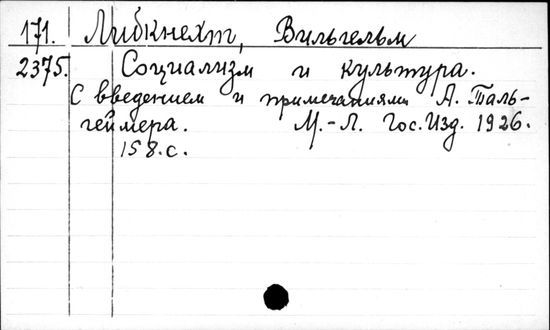 171. Либкнехт, Вильгельм
2375. Социализм и культура.
С введением и примечаниями А. Таль-
геймера. М.-Л. Гос. Изд. 1926.
158.с.